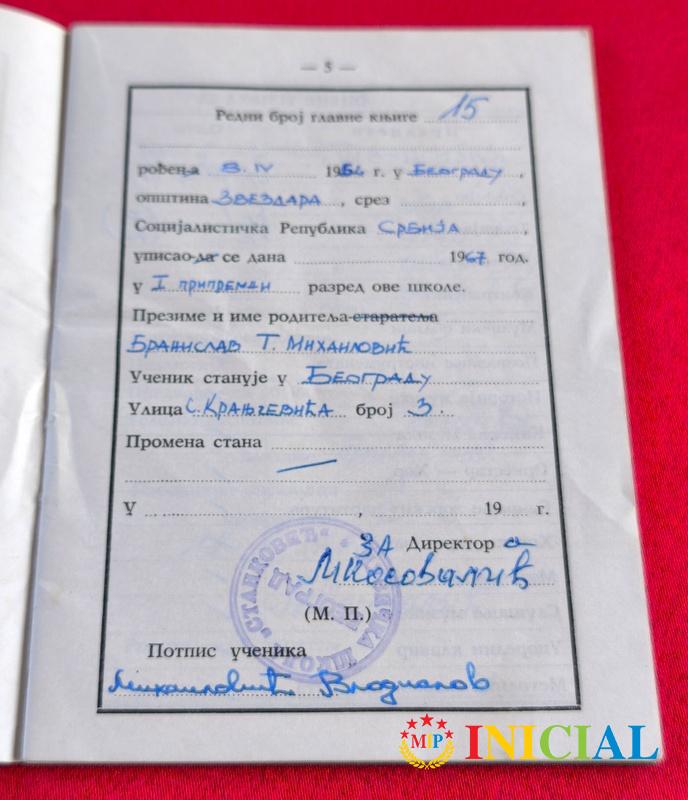 — 5 —
Редни број главне књиге 15
рођења 8. IV 1954 г. у БЕОГРАДУ,
општина ЗВЕЗДАРА, срез ,
Социјалистичка Република СРБИЈА,
уписао-ла се дана 1967 год.
у I припремни разред ове школе.
Презиме и име родитеља-старатеља
БРАНИСЛАВ Т. МИХАИЛОВИЋ
Ученик станује у БЕОГРАДУ
Улица С. КРАЊЧЕВИЋА број 3.
Промена стана
—
У , 19 г.
ЗА Директор а
(М. П.)
МУЗИЧКА ШКОЛА „СТАНКОВИЋ“
БЕОГРАД
Потпис ученика
Михаиловић
MIP INICIAL